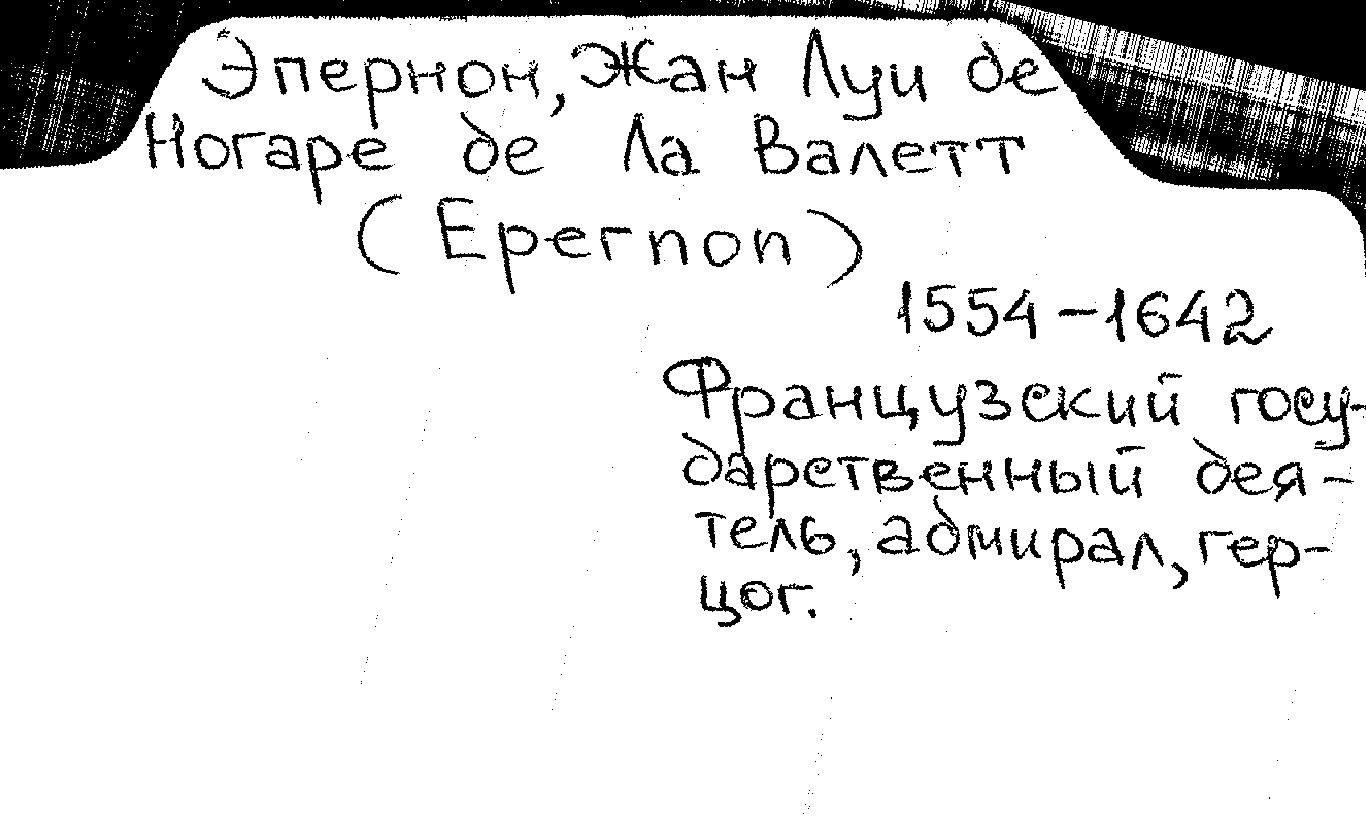 Эпернон, Жан Луи де
Ногаре де Ла Валетт
(Epernon)
1554-1642
Французский госу-
дарственный дея-
тель, адмирал, гер-
цог.